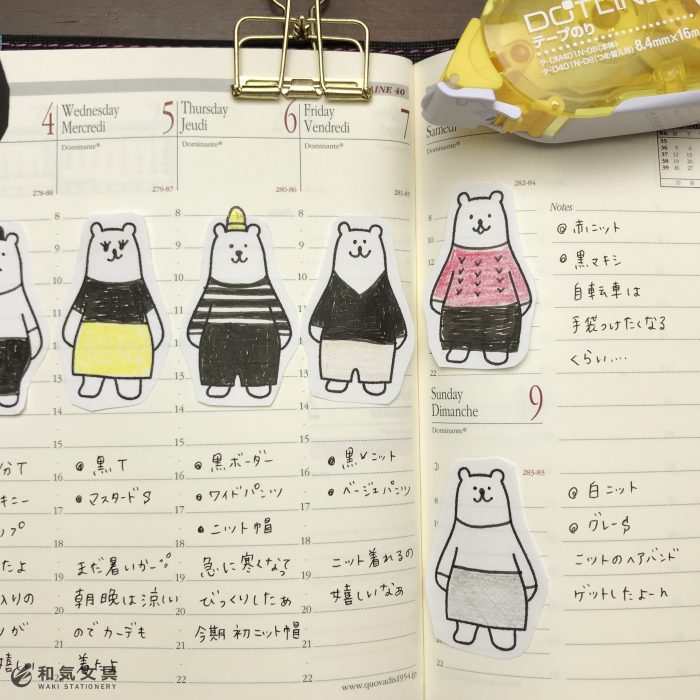 DOTLINE
テープのり
タ-DM401N-08(本体)
タ-D401N-08(つめ替え用) 8.4mm×16m
4
Wednesday 5
Mercredi
Dominante®
278-88
279-87
Thursday 6
Jeudi
Dominante®
280-86
Friday 7
Vendredi
Dominante®
281-85
Samedi
Dominante®
282-84
Notes
8
9
10
11
12
13
14
15
16
17
18
19
20
21
22
●黒T
●マスタードS
まだ暑いかー
朝晩は涼しい
のでカーデも
着たよ
●黒ボーダー
●ワイドパンツ
●ニット帽
急に寒くなって
びっくりしたぁ
今期初ニット帽
●黒Vニット
●ベージュパンツ
ニット着れるの
嬉しいなぁ
●赤ニット
●黒マキシ
自転車は
手袋つけたくなる
くらい....
Sunday 9
Dimanche
Dominante®
283-83
●白ニット
●グレーS
ニットのヘアバンド
ゲットしたよーん
www.quovadis1954.jp
和気文具
WAKI STATIONERY